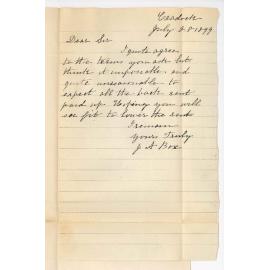 Craddock
July 28 1899
Dear Sir
I quite agree
to the terms you ask but
think it impossible and
quite unreasonable to
expect all the back rent
paid up. Hoping you will
see fit to lower the rent
I remain
Yours Truly
J A Box